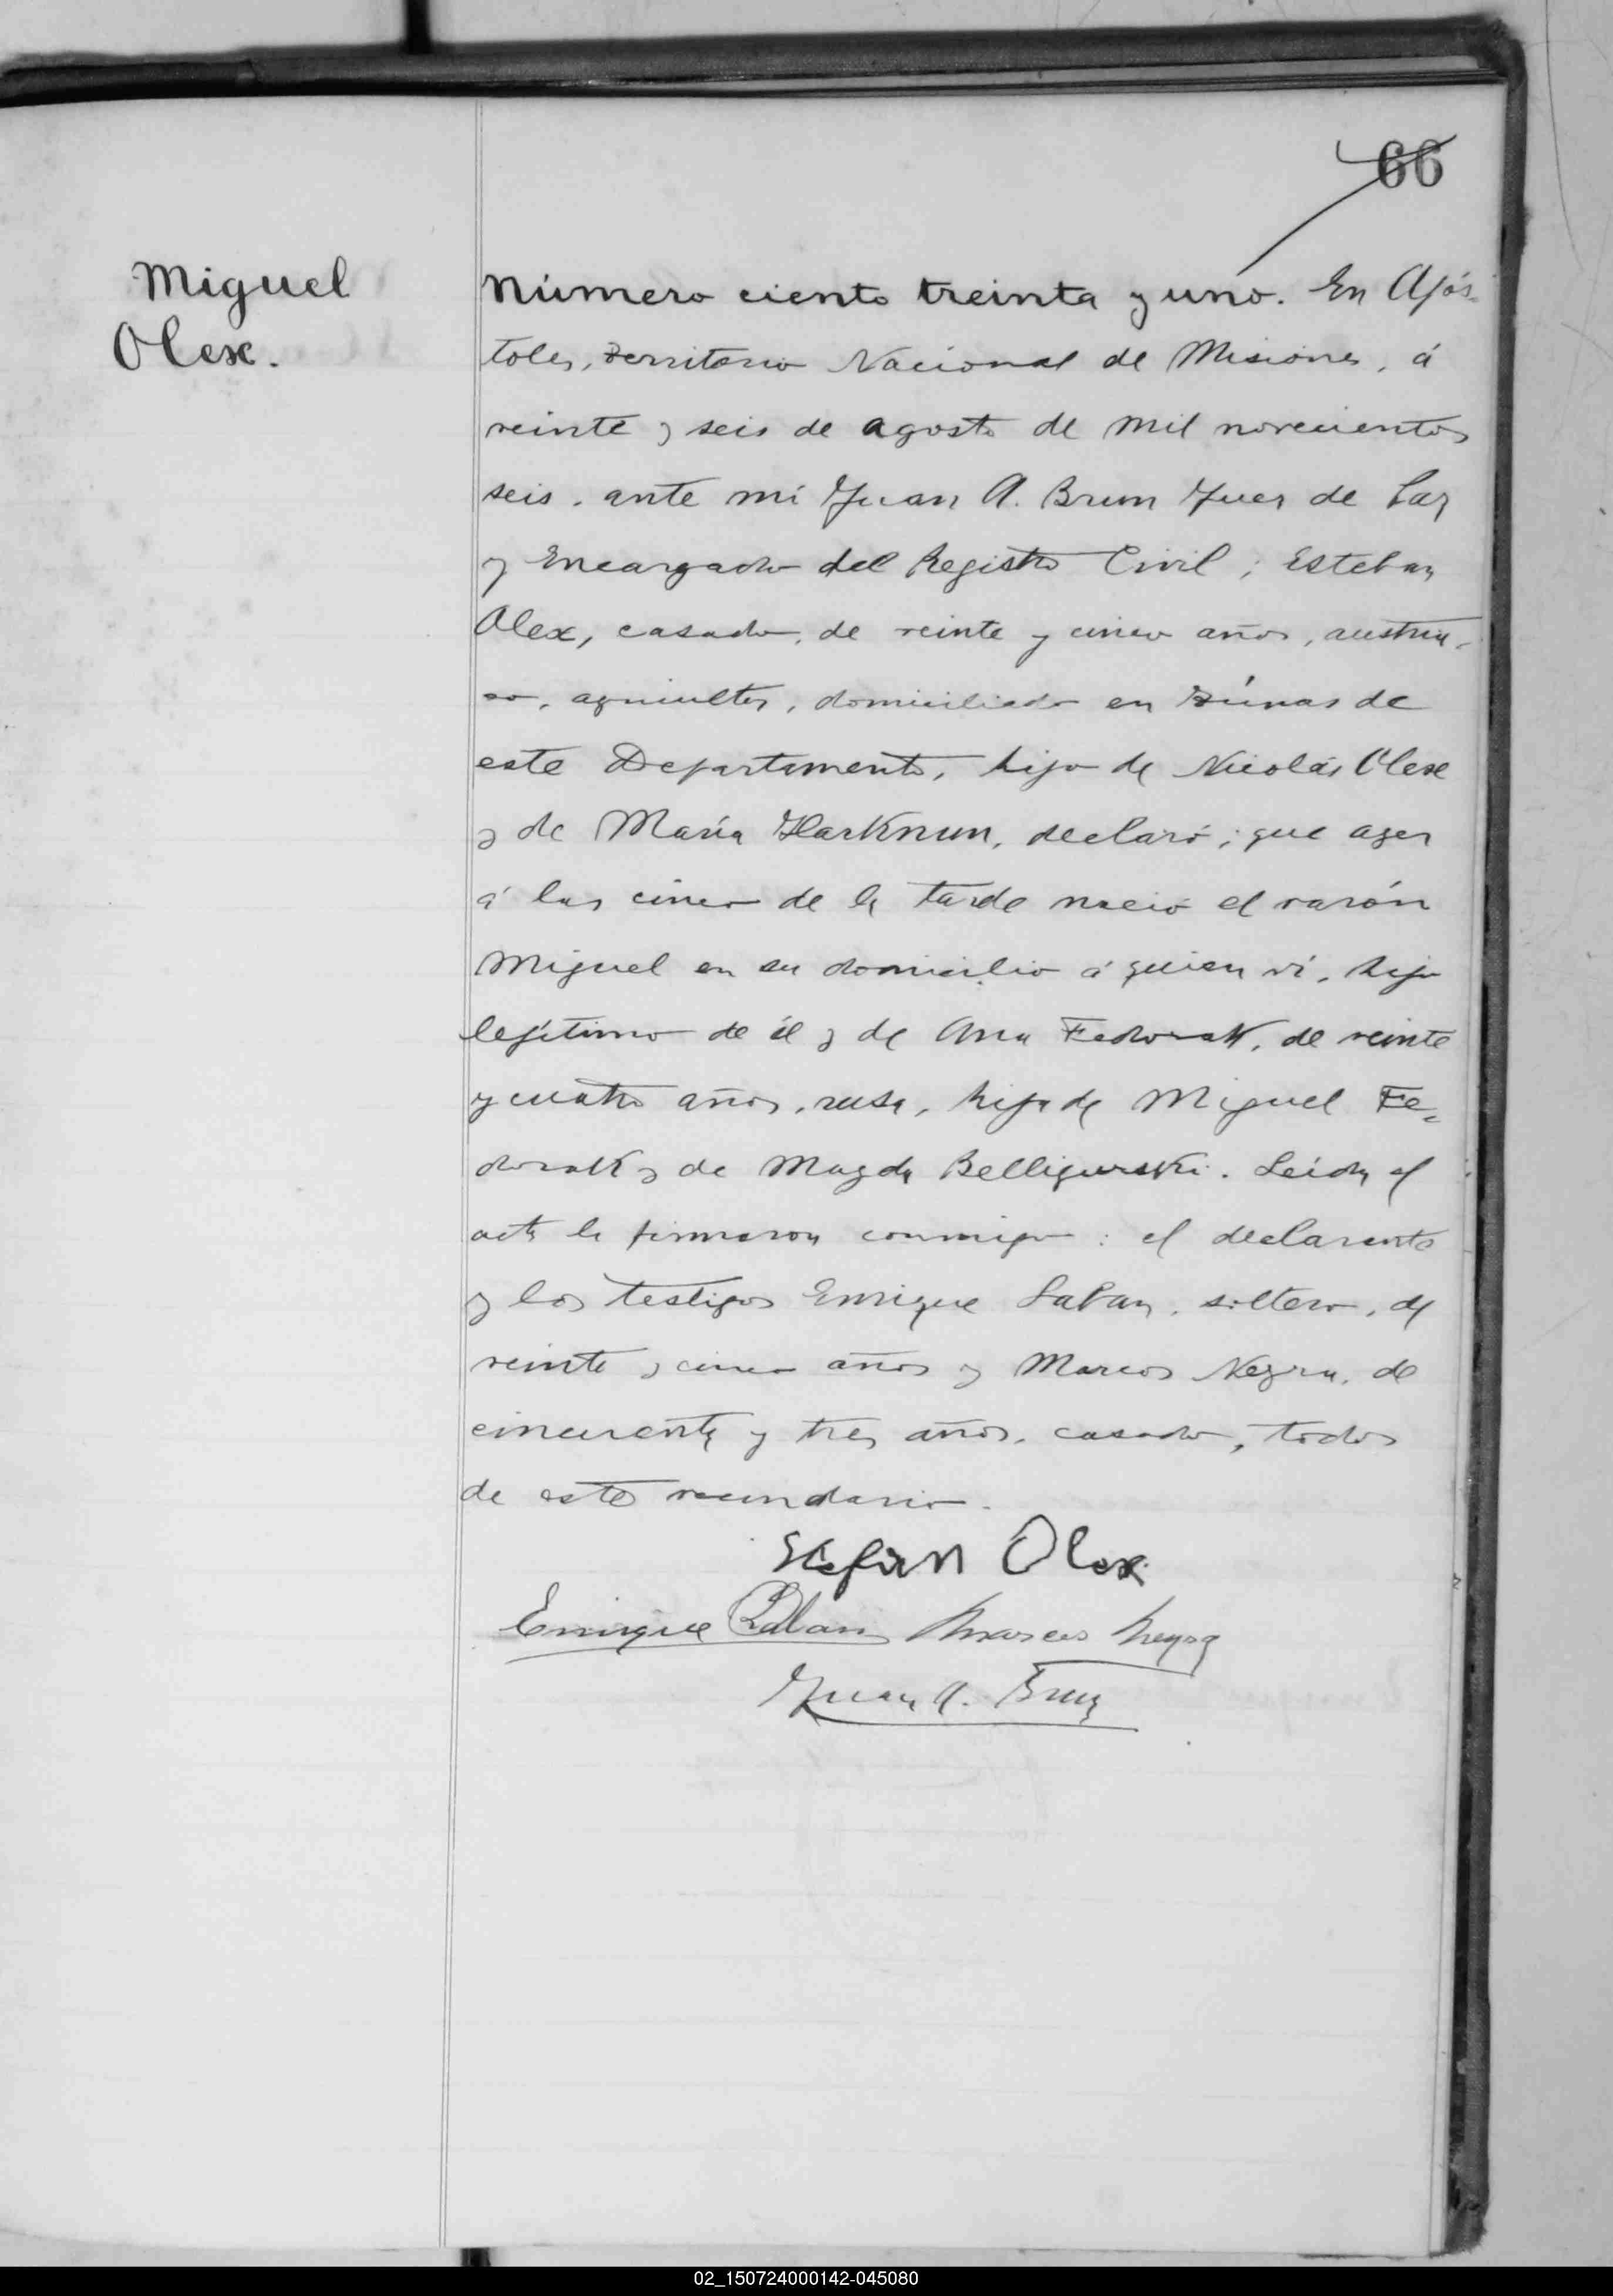 66
Miguel
Olex.
Número ciento treinta y uno. En Após-
toles, Territorio Nacional de Misiones, á
veinte y seis de agosto de mil novecientos
seis, ante mi Juan A. Brun Juez de Paz
y Encargado del Registro Civil; Esteban
Olex, casado, de veinte y cinco años, austria-
co, agricultor, domiciliado en de
este Departamento, hijo de Nicolás Olex
y de María Harknun, declaró; que ayer
á las cinco de la tarde nació el varón
Miguel en su domicilio á quien ví, hijo
legítimo de él y de Ana Fedorak, de veinte
y cuatro años, rusa, hija de Miguel Fe-
dorak y de Magda Belligurski. Leida el
acta la firmaron conmigo: el declarante
y los testigos Enrique Laban, soltero, de
veinte y cinco años y Marcos Negra, de
cincuenta y tres años, casado, todos
de este vecindario.
Stefan Olex
Enrique Marcos Neyra
Juan A. Brun
02_150724000142-045080